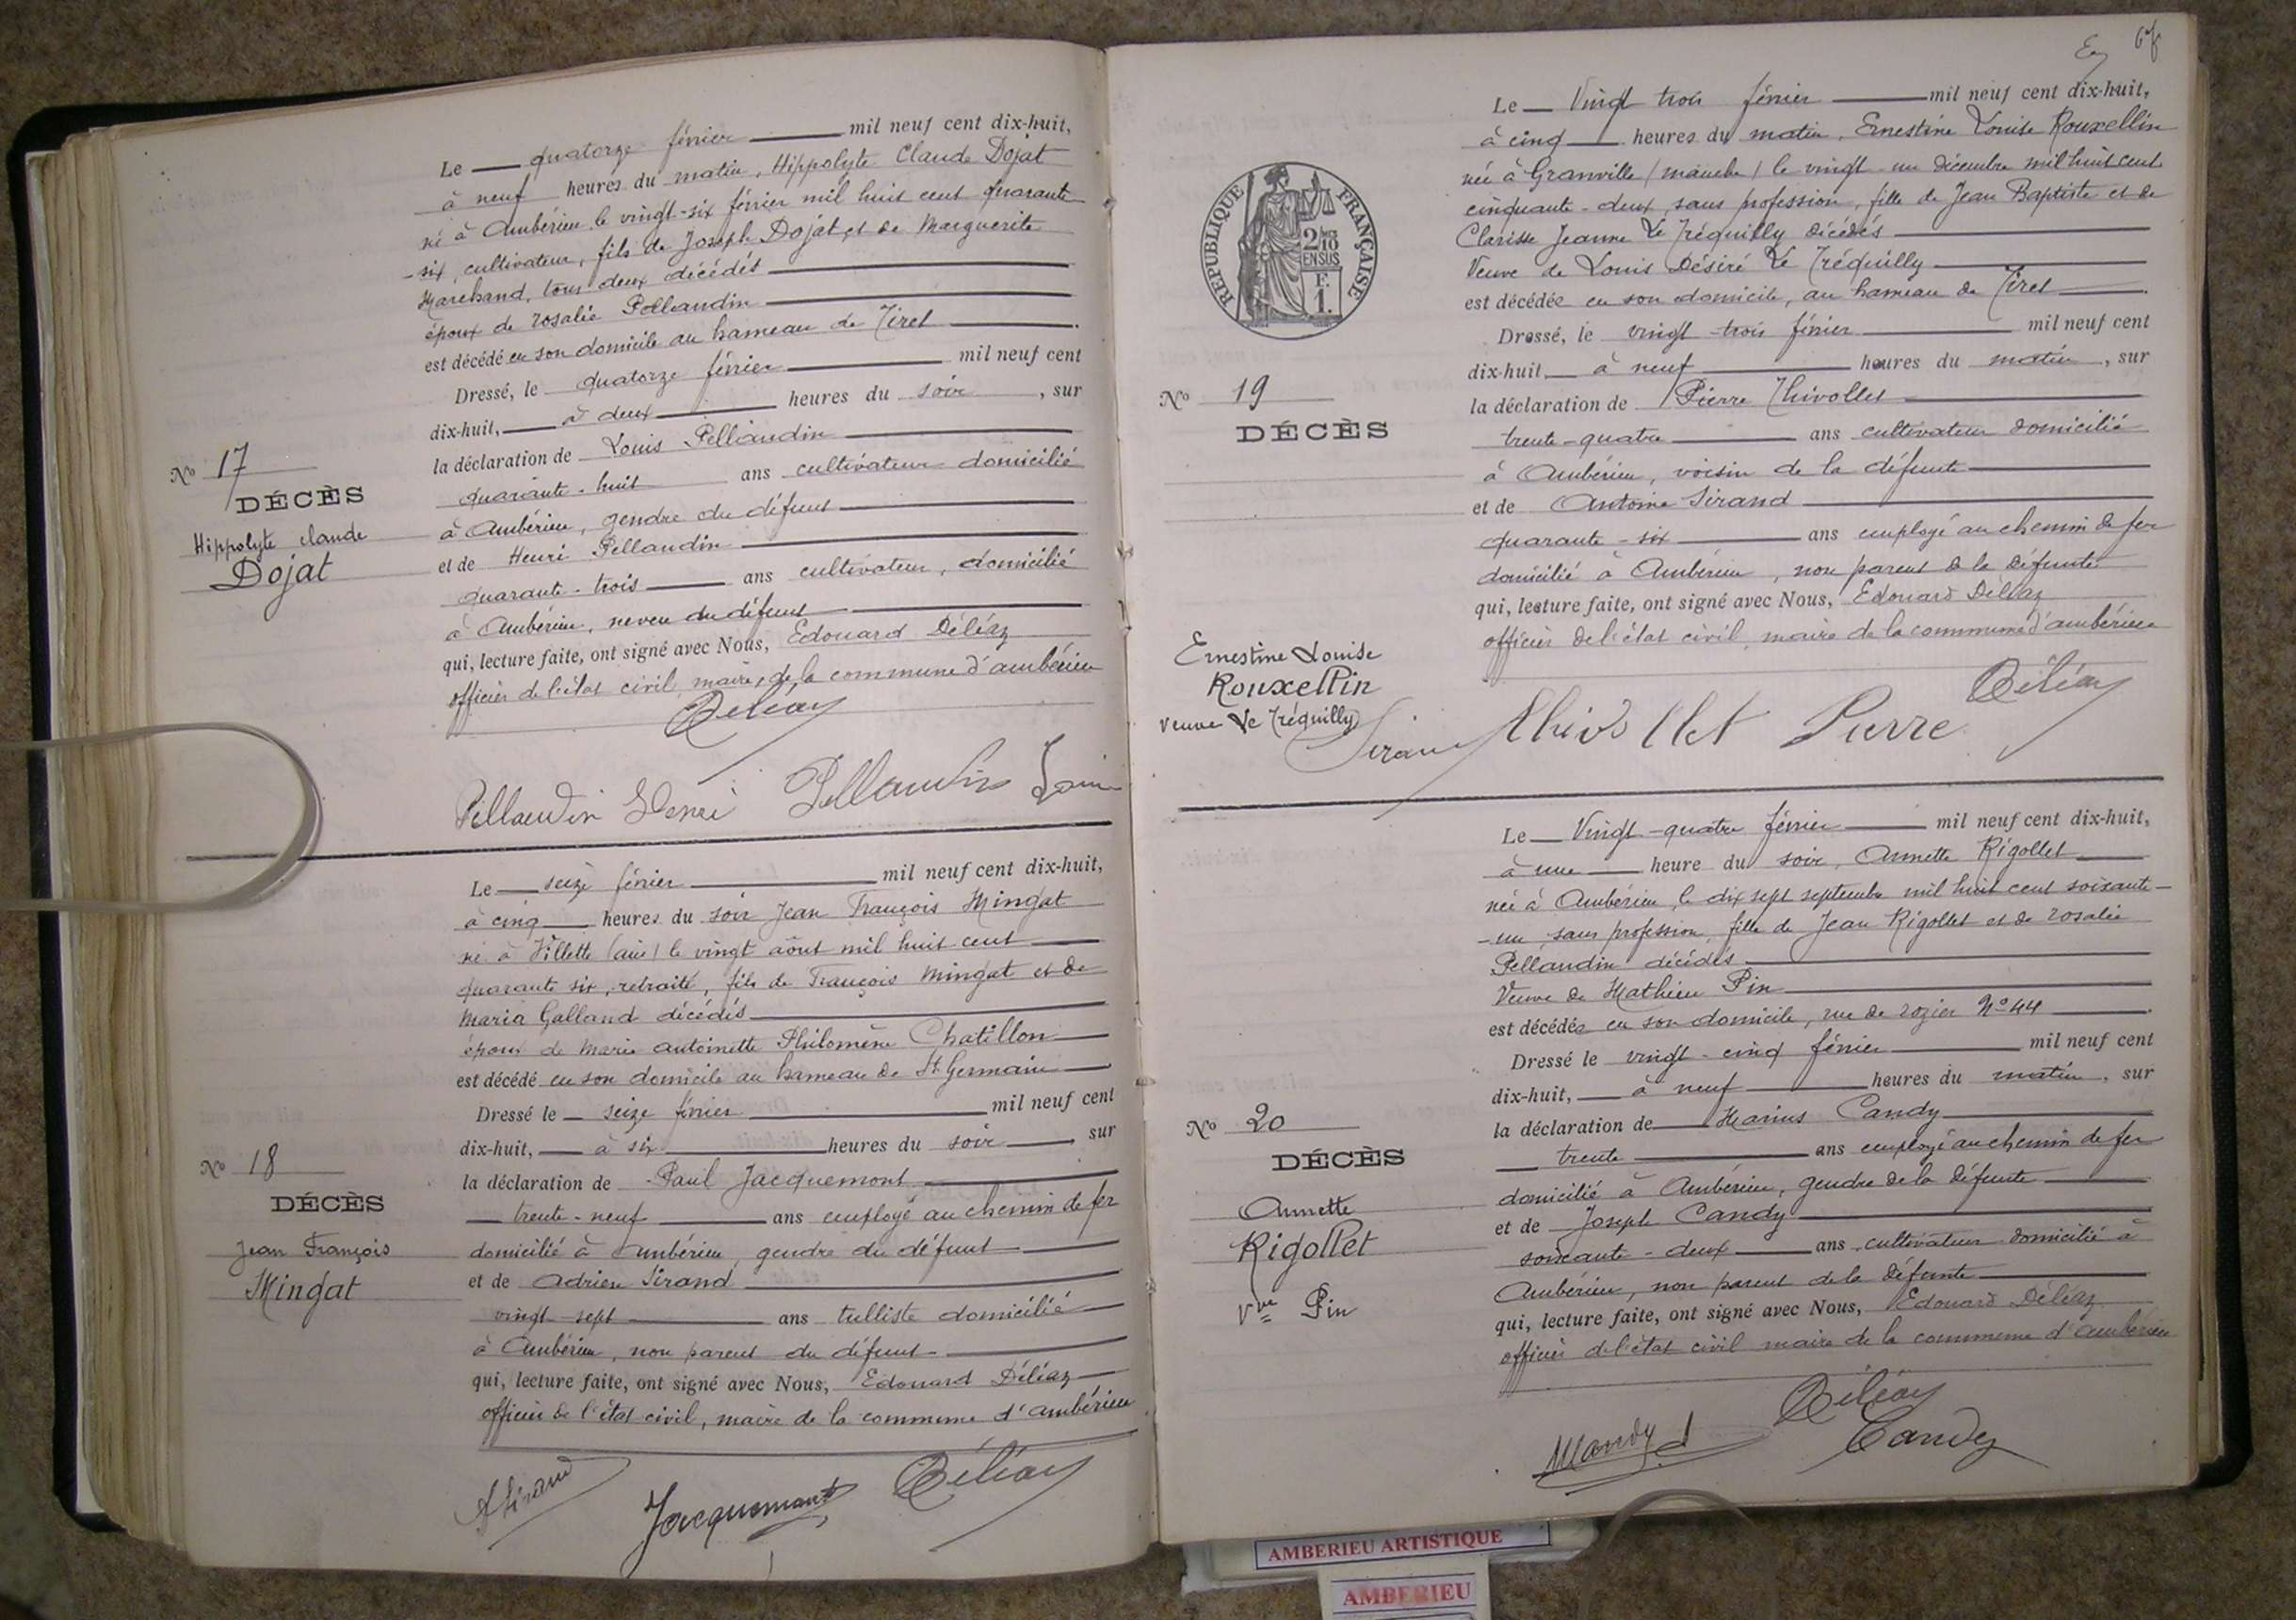 Le quatorze février mil neuf cent dix-huit,
à neuf heures du matin, Hippolyte Claude Dojat
né à Ambérieu le vingt-six février mil huit cent quarante
-six, cultivateur, fils de Joseph Dojat et de Marguerite
Marchand, tous deux décédés
époux de rosalie Pellaudin
est décédé en son domicile au hameau de Tiret
Dressé, le quatorze février mil neuf cent
dix-huit, à deux heures du soir, sur
la déclaration de Louis Pellaudin
quarante-huit ans cultivateur domicilié
à Ambérieu, gendre du défunt
et de Henri Pellaudin
quarante-trois ans cultivateur, domicilié
à Ambérieu, neveu du défunt
qui, lecture faite, ont signé avec Nous, Edouard Déléaz
officier de l'état civil, maire, de la commune d'ambérieu
Déléaz
Pellaudin Henri Pellaudin Louis
N° 17
DÉCÈS
Hippolyte claude
Dojat
Le seize février mil neuf cent dix-huit,
à cinq heures du soir Jean François Mingat
né à Villette (ain) le vingt août mil huit cent
quarante six, retraité, fils de François Mingat et de
Maria Galland décédés
époux de Marie antoinette Philomène Chatillon
est décédé en son domicile au hameau de St Germain
Dressé le seize février mil neuf cent
dix-huit, à six heures du soir, sur
la déclaration de Paul Jacquemont
trente-neuf ans employé au chemin de fer
domicilié à Ambérieu, gendre du défunt
et de Adrien Sirand
vingt-sept ans tulliste domicilié
à Ambérieu, non parent du défunt
qui, lecture faite, ont signé avec Nous, Edouard Déléaz
officier de l'état civil, maire de la commune d'ambérieu
A Sirand Jacquemont Déléaz
N° 18
DÉCÈS
Jean François
Mingat
67
Le Vingt trois février mil neuf cent dix-huit,
à cinq heures du matin, Ernestine Louise Rouxellin
née à Granville (manche) le vingt-un décembre mil huit cent
cinquante-deux, sans profession, fille de Jean Baptiste et de
Clarisse Jeanne Le Tréquilly décédés
Veuve de Louis Désiré Le Tréquilly
est décédée en son domicile, au hameau de Tiret
Dressé, le vingt-trois février mil neuf cent
dix-huit à neuf heures du matin, sur
la déclaration de Pierre Thivollet
trente-quatre ans cultivateur domicilié
à Ambérieu, voisin de la défunte
et de Antoine Sirand
quarante-six ans employé au chemin de fer
domicilié à Ambérieu, non parent de la défunte
qui, lecture faite, ont signé avec Nous, Edouard Déléaz
officier de l'état civil, maire de la commune d'ambérieu
Déléaz
Sirand Thivollet Pierre
RÉPUBLIQUE FRANÇAISE
2/10
EN SUS
F.
1.
N° 19
DÉCÈS
Ernestine Louise
Rouxellin
Veuve Le Tréquilly
Le Vingt-quatre février mil neuf cent dix-huit,
à une heure du soir, Annette Rigollet
née à Ambérieu le dix sept septembre mil huit cent soixante-
-un, sans profession, fille de Jean Rigollet et de rosalie
Pellaudin décédés
Veuve de Mathieu Pin
est décédée en son domicile, rue de rozier N° 44
Dressé le vingt-cinq février mil neuf cent
dix-huit, à neuf heures du matin, sur
la déclaration de Marius Candy
trente ans employé au chemin de fer
domicilié à Ambérieu, gendre de la défunte
et de Joseph Candy
soixante-deux ans cultivateur domicilié à
Ambérieu, non parent de la défunte
qui, lecture faite, ont signé avec Nous, Edouard Déléaz
officier de l'état civil maire de la commune d'ambérieu
Déléaz
Candy
N° 20
DÉCÈS
Annette
Rigollet
Vve Pin
AMBERIEU ARTISTIQUE
AMBERIEU